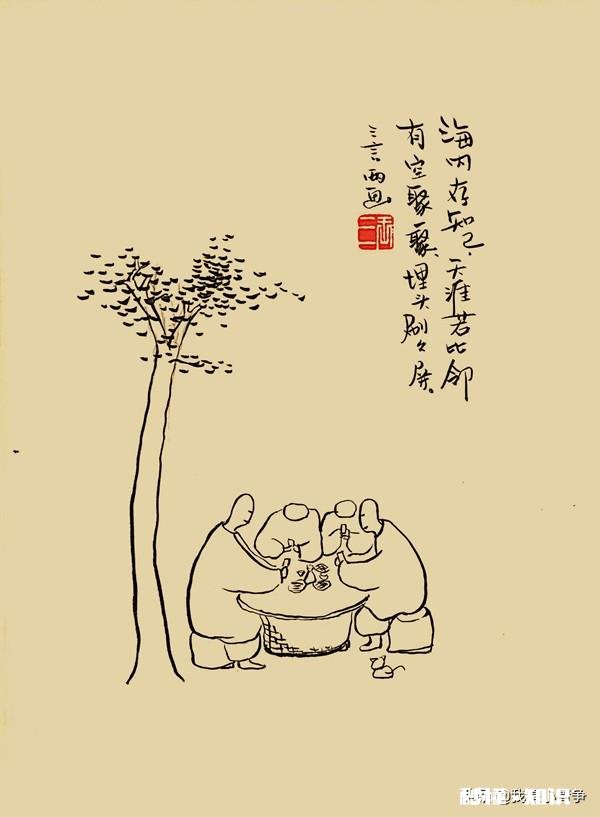 海内存知己.天涯若比邻
有空聚聚.埋头刷々屏.
三言两画